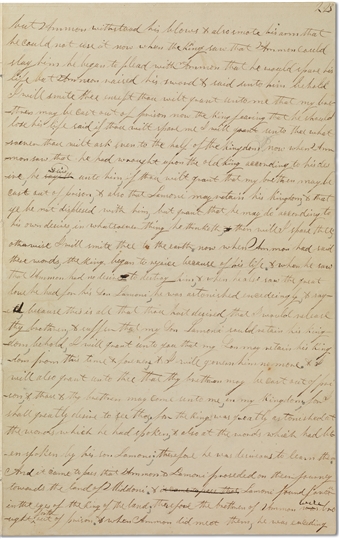 but Ammon withstood his blows & also smote his arm that
he could not use it now when the King saw that Ammon could
slay him he began to plead with Ammon that he would spare his
life but Ammon raised his sword & said unto him behold
I will smite thee except thou wilt grant unto me that my bre-
thren may be cast out of prison now the King fearing that he should
lose his life said if thou wilt spare me I will grant unto thee what
soever thou wilt ask even to the half of the kingdom now when Am-
mon saw that he had wrought upon the old king according to his des-
ire he said unto him if thou wilt grant that my brethren may be
cast out of prison & also that Lamoni may retain his kingdom & that
ye be not displeased with him but grant that he may do according to
his own desires in whatsoever thing he thinketh & then will I spare thee
otherwise I will smite thee to the earth now when Ammon had said
these words the King began to rejoice because of his life & when he saw
that Ammon had no desire to destroy him & when he also saw the great
love he had for his Son Lamoni he was astonished exceedingly & say-
because this is all that thou hast desired that I would release
thy brethren & suffer that my Son Lamoni should retain his king-
dom behold I will grant unto you that my Son may retain his king
dom from this time & forever & I will govern him no more & I
will also grant unto thee that thy brethren may be cast out of pris
on & thou & thy brethren may come unto me in my kingdom for I
shall greatly desire to see thee for the king was greatly astonished at
the words which he had spoken & also at the words which had been
spoken by his son Lamoni therefore he was desirous to learn them
And it came to pass that Ammon & Lamoni proceeded on their journey
towards the land of Middoni & Lamoni found favor
in the eyes of the king of the land therefore the brethren of Ammon were
brought forth out of prison & when Ammon did meet them he was exceeding